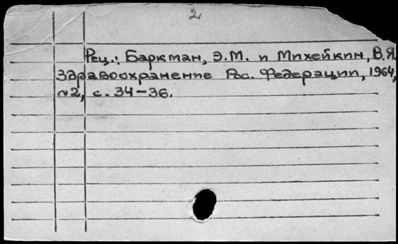 2
Рец.: Баркман, Э.М. и Михейкин, В.Я.
Здравоохранение Рос. Федерации, 1964,
№2, с. 34-36.